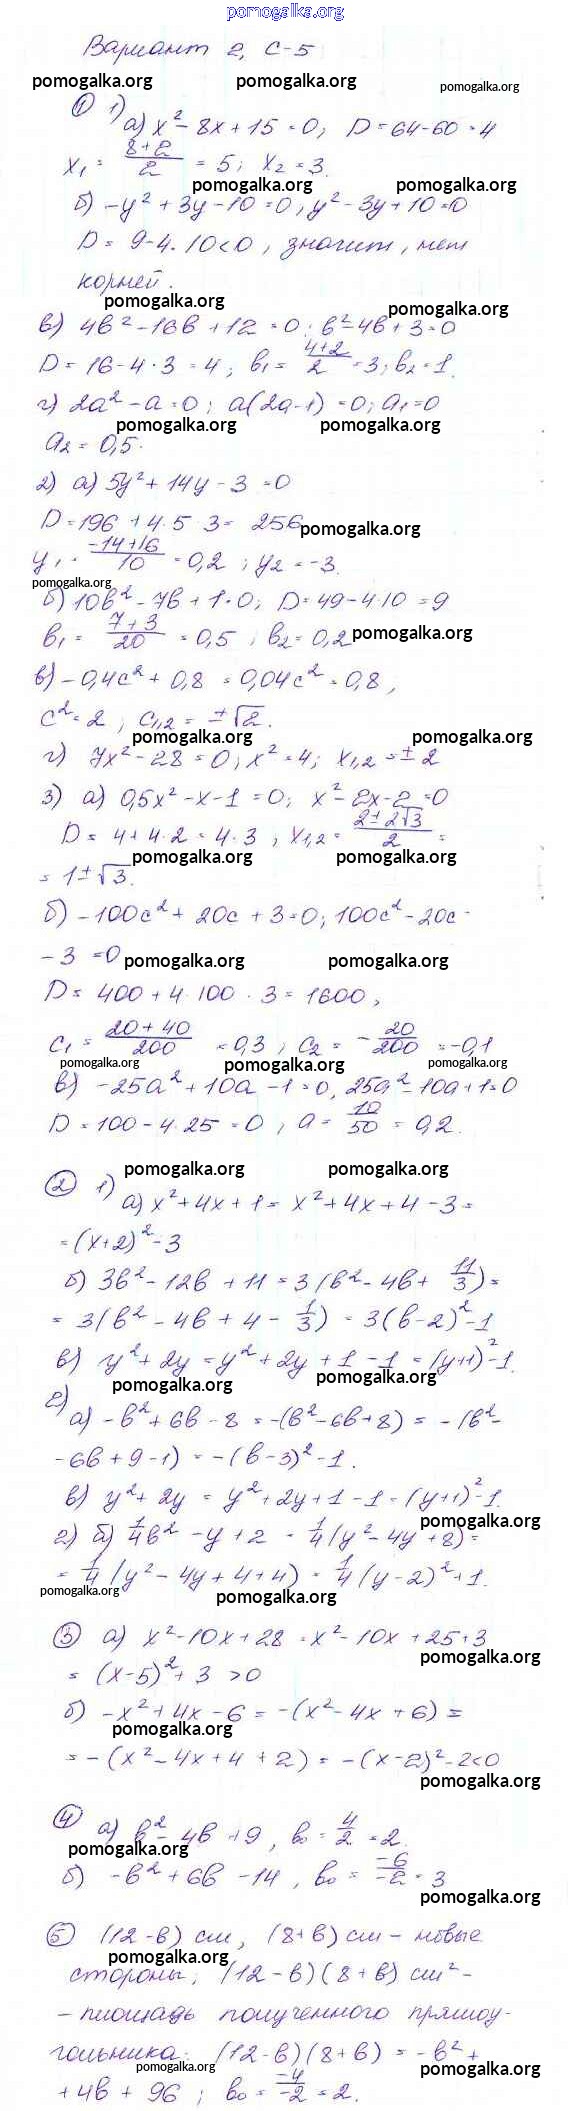 pomogalka.org
Вариант 2, С-5
pomogalka.org pomogalka.org pomogalka.org
① 1)
а) x² - 8x + 15 = 0; D = 64 - 60 = 4
x₁ = (8+2)/2 = 5; x₂ = 3.
pomogalka.org pomogalka.org
б) -y² + 3y - 10 = 0, y² - 3y + 10 = 0
D = 9 - 4·10 < 0, значит, нет
корней.
pomogalka.org pomogalka.org
в) 4b² - 16b + 12 = 0; b² - 4b + 3 = 0
D = 16 - 4·3 = 4; b₁ = (4+2)/2 = 3; b₂ = 1.
г) 2a² - a = 0; a(2a-1) = 0; a₁ = 0
pomogalka.org pomogalka.org
a₂ = 0,5.
2) а) 5y² + 14y - 3 = 0
D = 196 + 4·5·3 = 256
pomogalka.org
y₁ = (-14+16)/10 = 0,2; y₂ = -3.
pomogalka.org
б) 10b² - 7b + 1 = 0; D = 49 - 4·10 = 9
b₁ = (7+3)/20 = 0,5; b₂ = 0,2
pomogalka.org
в) -0,4c² + 0,8 = 0,04c² = 0,8,
c² = 2; c₁,₂ = ±√2.
pomogalka.org pomogalka.org
г) 7x² - 28 = 0; x² = 4; x₁,₂ = ± 2
3) а) 0,5x² - x - 1 = 0; x² - 2x - 2 = 0
D = 4 + 4·2 = 4·3, x₁,₂ = (2±2√3)/2 =
= 1±√3.
pomogalka.org pomogalka.org
б) -100c² + 20c + 3 = 0; 100c² - 20c -
- 3 = 0
pomogalka.org pomogalka.org
D = 400 + 4·100·3 = 1600,
c₁ = (20+40)/200 = 0,3; c₂ = -20/200 = -0,1
pomogalka.org pomogalka.org pomogalka.org
в) -25a² + 10a - 1 = 0, 25a² - 10a + 1 = 0
D = 100 - 4·25 = 0, a = 10/50 = 0,2.
pomogalka.org pomogalka.org
② 1)
а) x² + 4x + 1 = x² + 4x + 4 - 3 =
= (x+2)² - 3
б) 3b² - 12b + 11 = 3(b² - 4b + 11/3) =
= 3(b² - 4b + 4 - 1/3) = 3(b-2)² - 1
в) y² + 2y = y² + 2y + 1 - 1 = (y+1)² - 1.
pomogalka.org pomogalka.org
2)
а) -b² + 6b - 8 = -(b² - 6b + 8) = -(b² -
- 6b + 9 - 1) = -(b-3)² - 1.
в) y² + 2y = y² + 2y + 1 - 1 = (y+1)² - 1.
pomogalka.org
2) б) 1/4b² - y + 2 = 1/4(y² - 4y + 8) =
= 1/4(y² - 4y + 4 + 4) = 1/4(y-2)² + 1.
pomogalka.org pomogalka.org
③ а) x² - 10x + 28 = x² - 10x + 25 + 3
pomogalka.org
= (x-5)² + 3 > 0
б) -x² + 4x - 6 = -(x² - 4x + 6) =
pomogalka.org
= -(x² - 4x + 4 + 2) = -(x-2)² - 2 < 0
pomogalka.org
④ а) b² - 4b + 9, b₀ = 4/2 = 2.
pomogalka.org
б) -b² + 6b - 14, b₀ = -6/-2 = 3
pomogalka.org
⑤ (12-b) см, (8+b) см - новые
pomogalka.org
стороны; (12-b)(8+b) см² -
- площадь полученного прямоу-
гольника: (12-b)(8+b) = -b² +
pomogalka.org pomogalka.org
+ 4b + 96; b₀ = -4/-2 = 2.